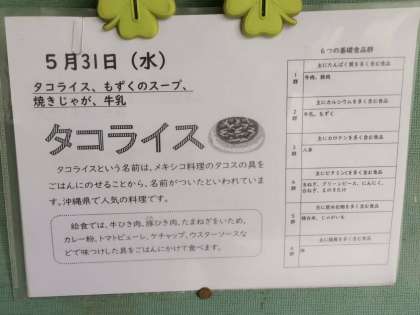 5月31日（水）
タコライス、もずくのスープ、
焼きじゃが、牛乳
タコライス
タコライスという名前は、メキシコ料理のタコスの具を
ごはんにのせることから、名前がついたといわれていま
す。沖縄県で人気の料理です。
給食では、牛ひき肉、豚ひき肉、たまねぎをいため、
カレー粉、トマトピューレ、ケチャップ、ウスターソースな
どで味つけした具をごはんにかけて食べます。
６つの基礎食品群
主にたんぱく質を多く含む食品
1群
牛肉、豚肉
主にカルシウムを多く含む食品
2群
牛乳、もずく
主にカロテンを多く含む食品
3群
人参
主にビタミンCを多く含む食品
4群
玉ねぎ、グリーンピース、にんにく、
主に炭水化物を多く含む食品
5群
精白米、じゃがいも
主に脂質を多く含む食品
6群
油